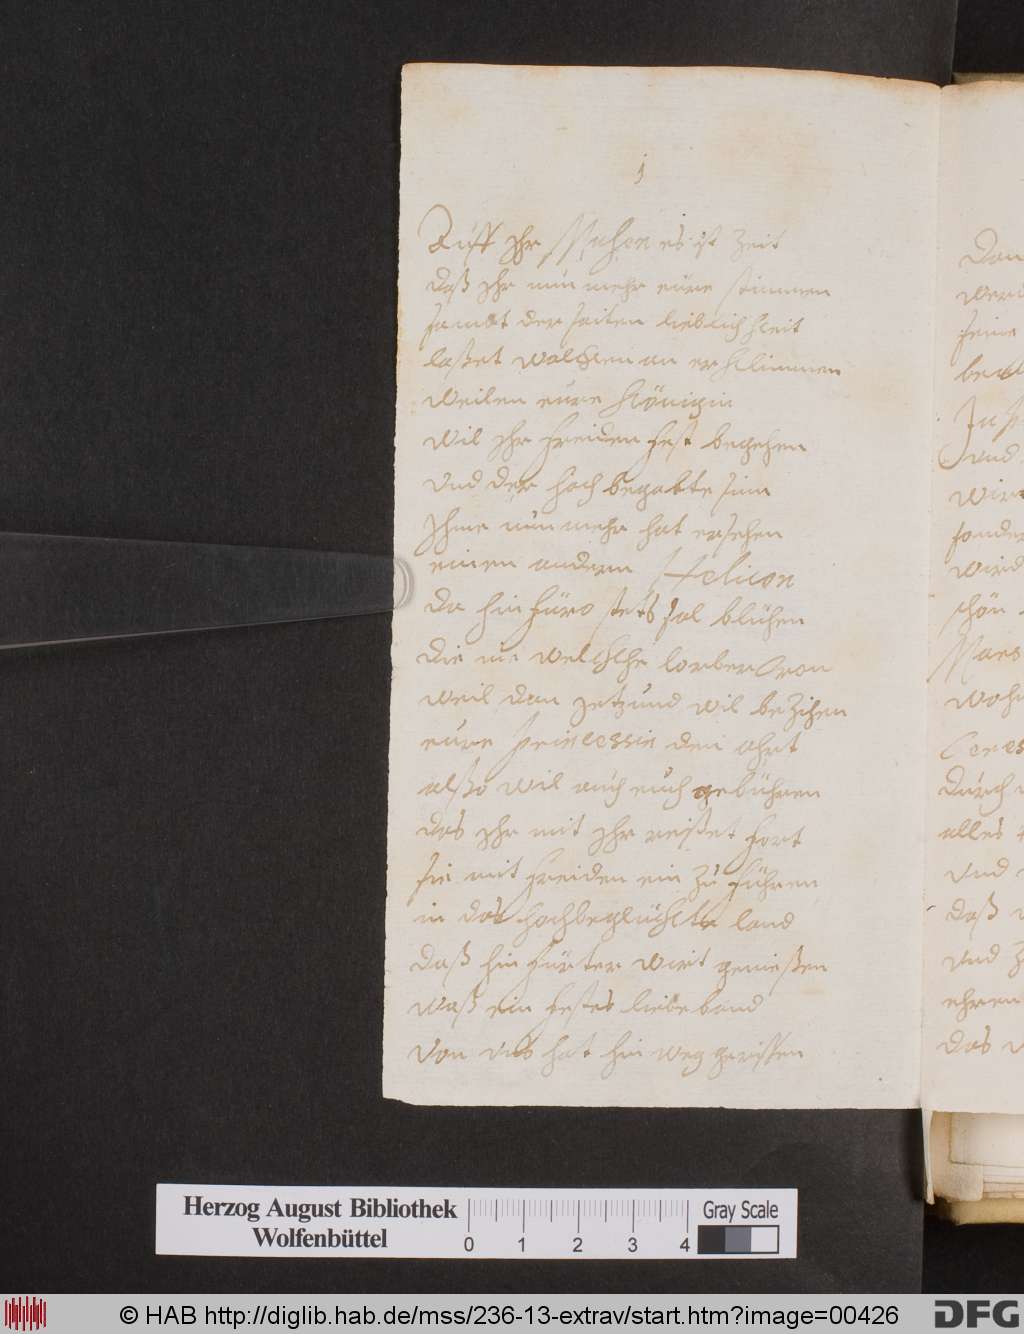 1
Auff Ihr Musen es ist Zeit
daß Ihr nun mehr eure stimmen
sambt der seiten lieblichkeit
laßet wolcken an erklimmen
weilen eure Königin
wil Ihr freiden fest begehen
und der hoch begabte sinn
Ihme nun mehr hat ersehen
einen andern Helicon
da hinfüro stets sol blühen
die nie welchke lorber Cron
weil dan Jetzund wil beZihen
eure Princessin den ohrt
alßo wil auch euch gebühren
das Ihr mit Ihr reißet fort
sie mit freiden ein zu führen
in das hochbeglückte land
daß hinfürter wirt genießen
waß ein festes liebeband
von uns hat hin weg gerissen
Dan
werd
seine
und
wird
sonder
wird
schön
Mars
Ceres
durch
alles
und
daß
und
ehren
das
Herzog August Bibliothek
Wolfenbüttel
0 1 2 3 4
Gray Scale
© HAB http://diglib.hab.de/mss/236-13-extrav/start.htm?image=00426
DFG